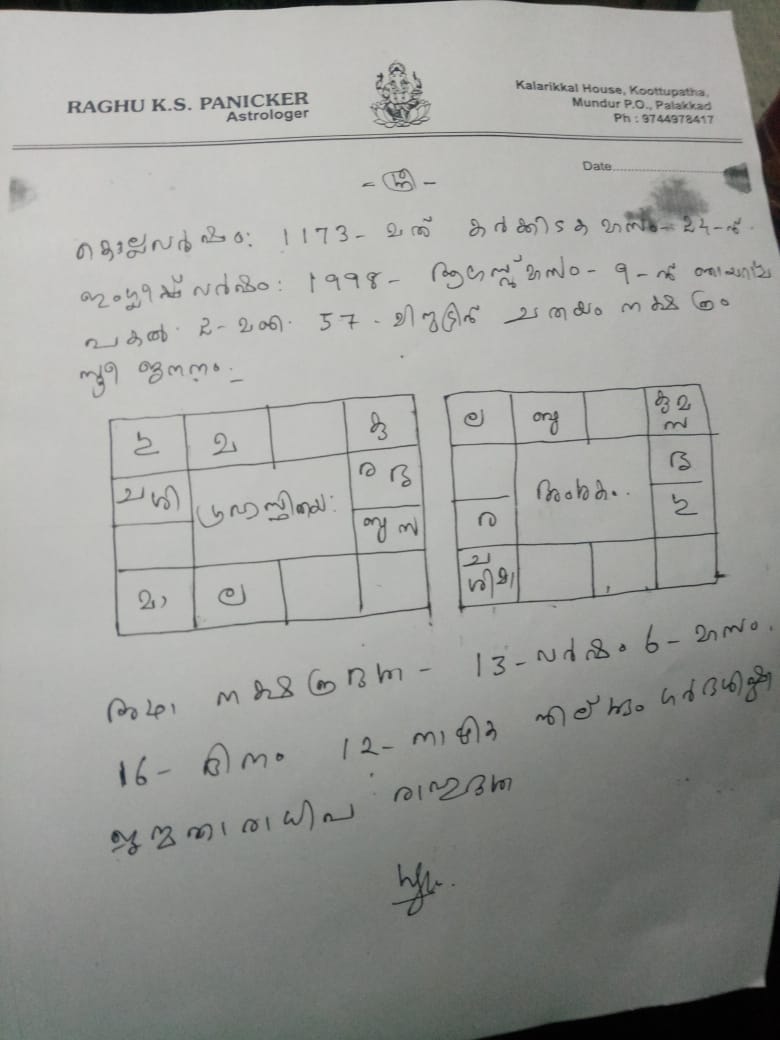 RAGHU K.S. PANICKER
Astrologer
Kalarikkal House, Koottupatha,
Mundur P.O., Palakkad
Ph : 9744978417
Date
കൊല്ലവർഷം: 1173- മത് കർക്കിടക മാസം- 24-ന്
ഇംഗ്ലീഷ് വർഷം: 1998- ആഗസ്റ്റ് മാസം - 9-ന് ഞായറാഴ്ച
പകൽ 2-മണി 57-മിനുട്ടിന് ചതയം നക്ഷത്രം
സ്ത്രീ ജനനം:
മ കു
ച ശി ഗ്രഹസ്ഥിതി: ര
ബു സ
മാ ല
ല ബു കു മ
സ
അംശകം
ര
ച
ശി മാ
നക്ഷത്രദശ - 13-വർഷം 6-മാസം
16- ദിനം 12- നാഴിക
രാഹുദശ